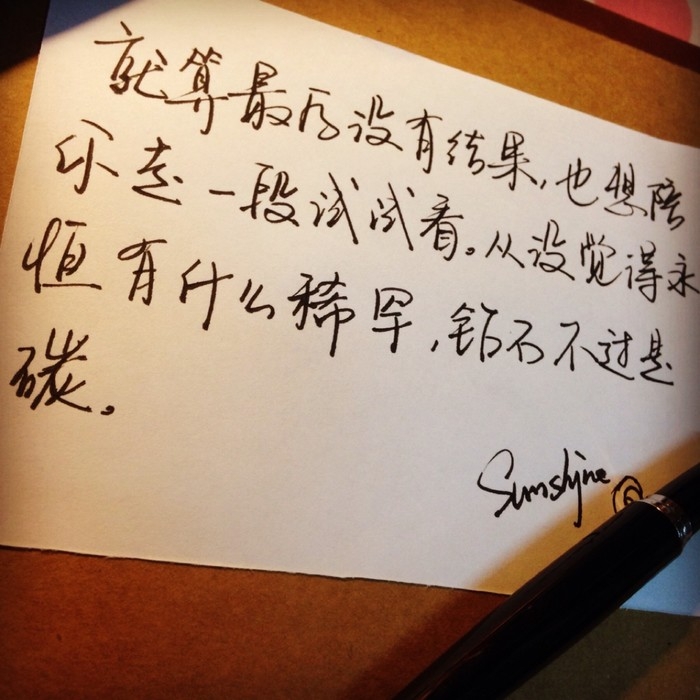 就算最后没有结果,也想陪
你走一段试试看。从没觉得永
恒有什么稀罕,钻石不过是
碳。
Sunshine